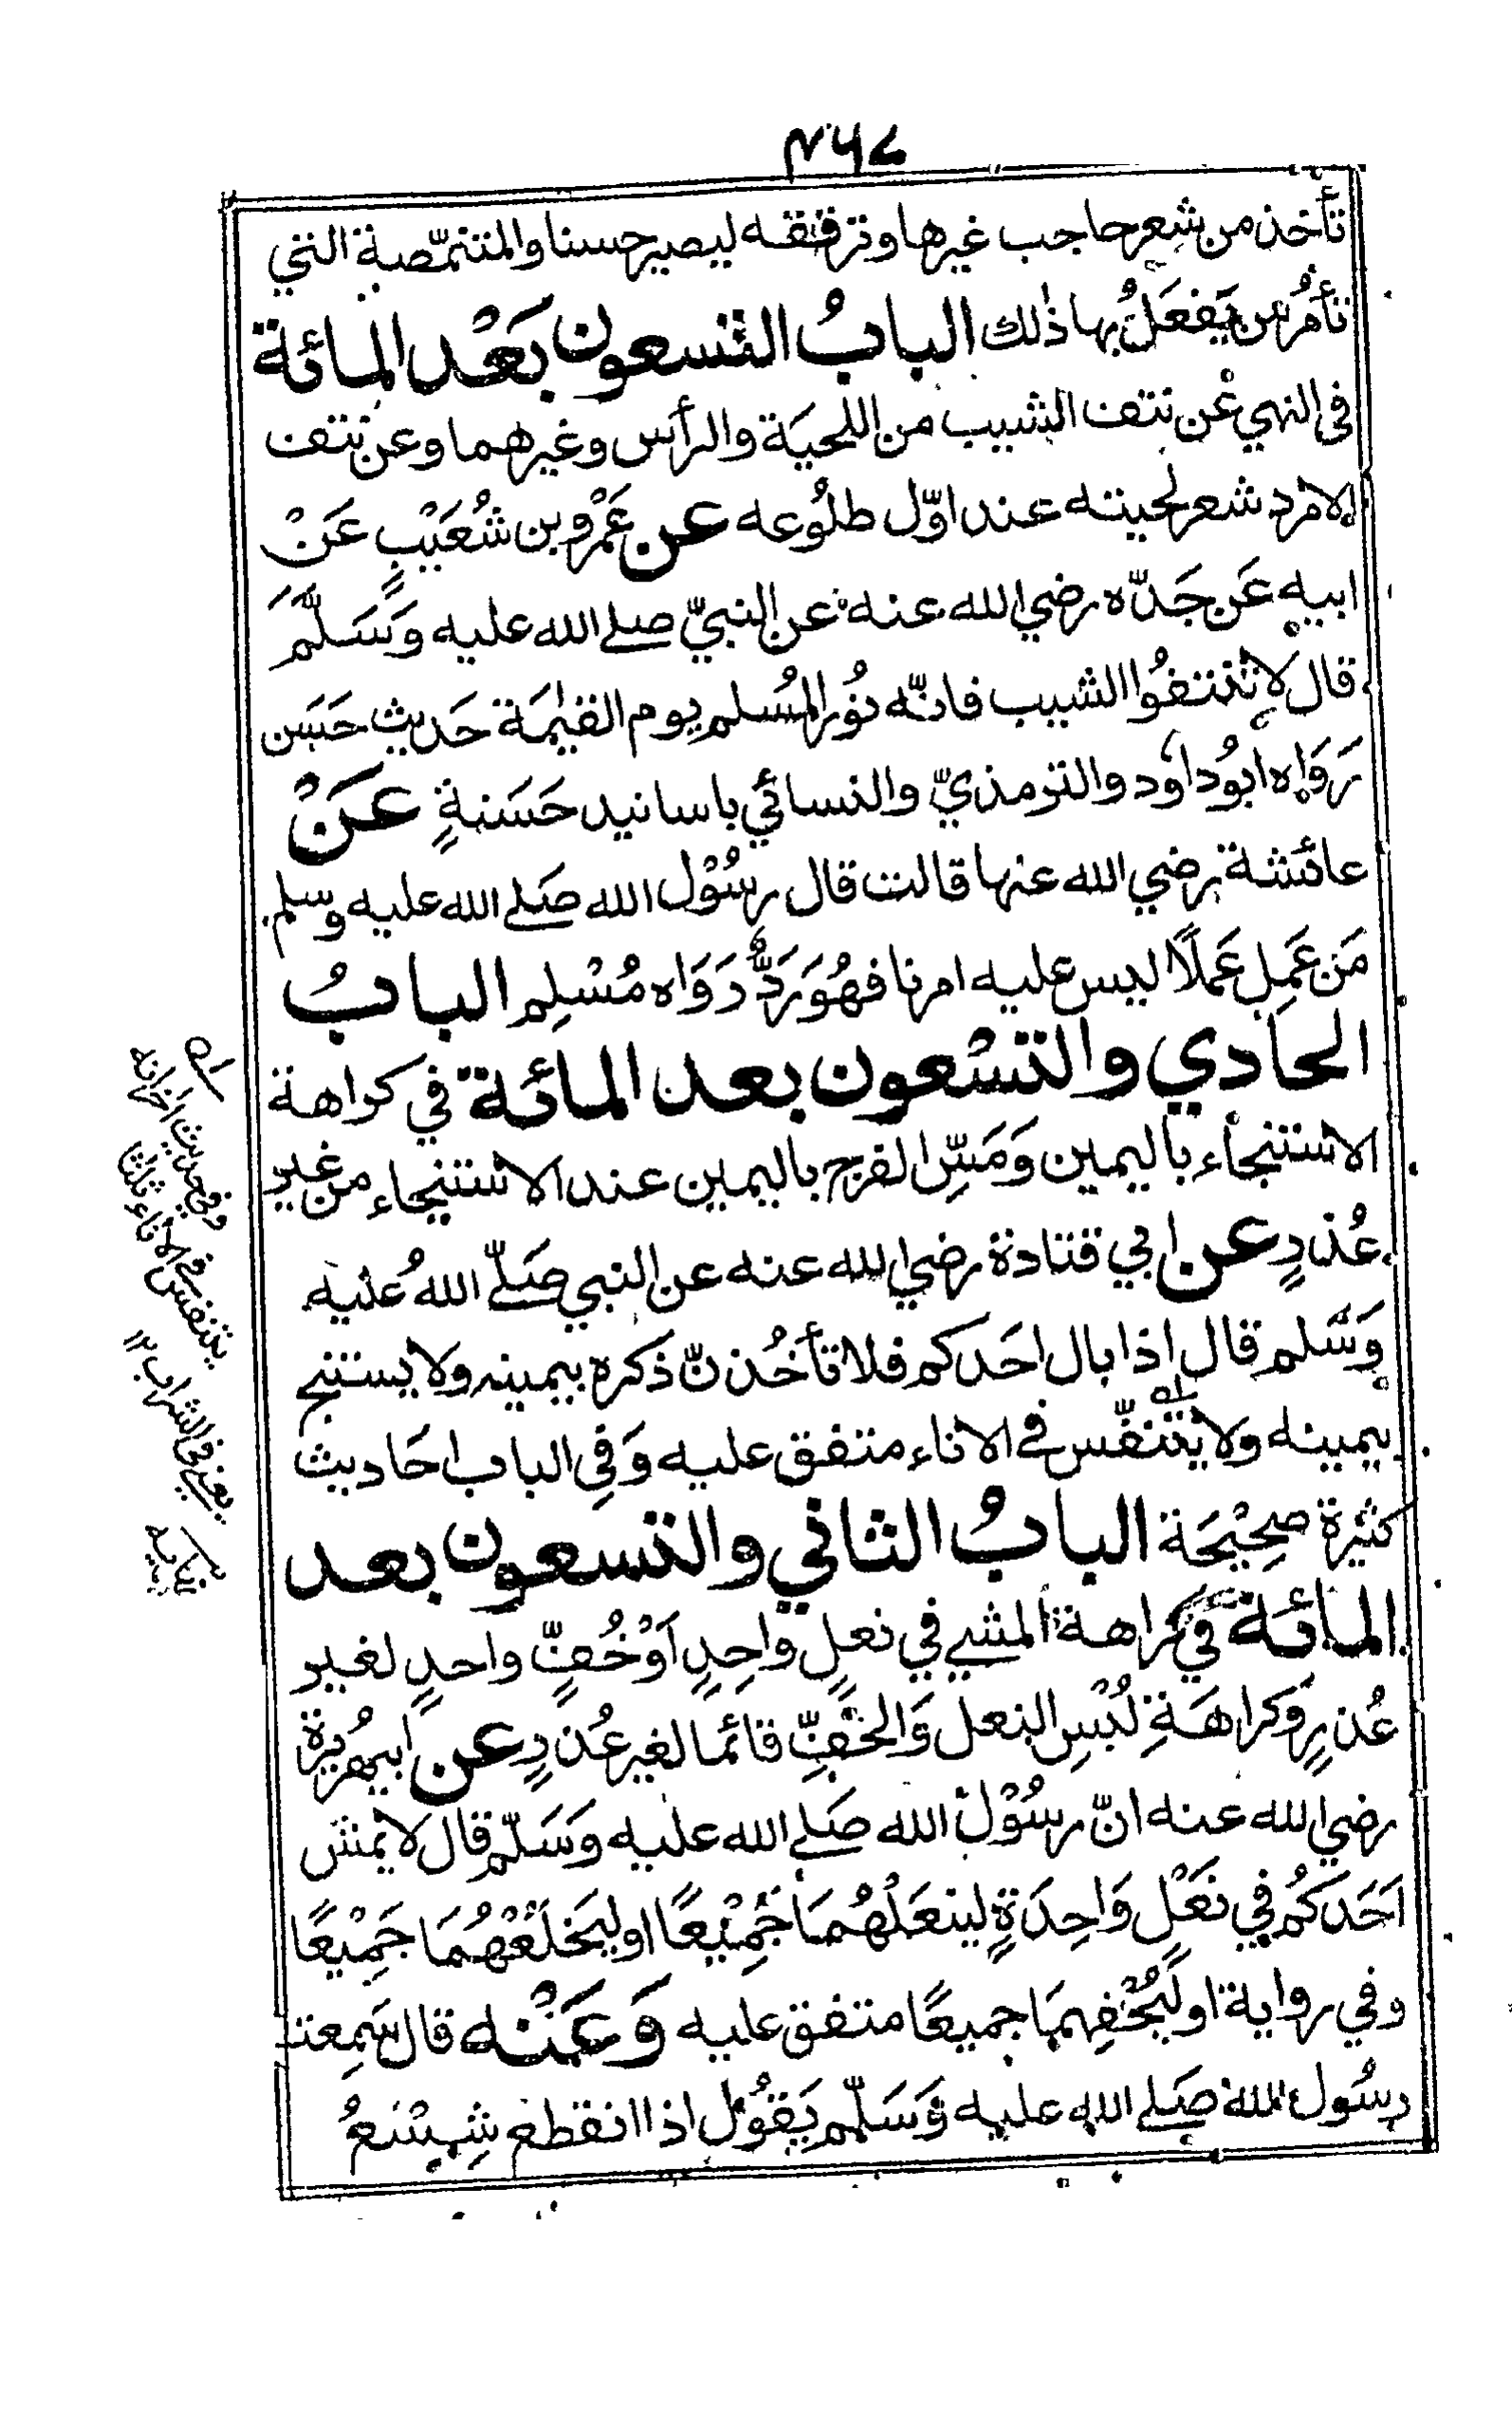 ۴۶۷
تأخذ من شعر حاجب غيرها وترققه ليصير حسنا والمتنمّصة التي
تأمُر من يَفعَلُ بها ذٰلك البابُ التسعون بَعْد المائة
فى النهي عن نتف الشيب من اللحيَة والرأس وغيرهما وعن نتف
الامرد شعر لحيته عند اوّل طلُوعه عن عَمْرو بن شُعَيْبٍ عَنْ
ابيه عَن جَدّه رضي الله عنه عن النبيّ صلے الله عليه وَسَلَّمَ
قال لا تنتفُوا الشيب فانّه نُور المُسلم يوم القيٰمَة حَديث حَسَن
رَوَاه ابوُداود والترمذيّ والنسائي باسانيد حَسَنةٍ عَنْ
عائشة رضي الله عنها قالت قال رسُوْل الله صَلے الله عليه وسلم
مَن عَمِل عَمَلًا ليس عليه امرنا فهُوَ رَدٌّ رَوَاه مُسْلِم البابُ
الحادي والتسْعون بعد المائة في كراهة
الاستنجاء باليمين وَمَسِّ الفرج باليمين عند الاستنجاء من غير
عُذرٍ عن ابي قتادة رضي الله عنه عن النبي صَلّے اللهُ عليه
وَسَّلم قال اذا بال احَدكم فلا تأخُذنّ ذكره بيمينه ولا يستنج
بيمينه ولا يتنفّس فے الاناء متفق عليه وَفي الباب احَاديث
كثيرة صحِيْحَة البابُ الثاني والتسعون بعد
المائة في كراهة المشي في نعلٍ واحِدٍ اَوْ خُفٍّ واحدٍ لغير
عُذرٍ وكراهَةِ لُبْسِ النعل وَالخُفِّ قائما لغير عُذرٍ عن ابيهُريرة
رضي الله عنه انّ رسُوْل الله صَلے الله عليه وَسَلّم قال لا يمش
اَحَدكُم في نَعْل وَاحِدَةٍ لينعَلْهُمَا جَمِيْعًا او ليَخلَعْهُمَا جَمِيْعًا
وفي رواية او ليُحْفِهِمَا جميعًا متفق عليه وَعَنْه قال سَمِعت
رسُول الله صَلے الله عليه وَسَلّم يَقوُل اذا انقطع شِسْعُ
وفي حديث اخر انه
يتنفس في الاناء ثلثا
يعني في الشراب ۱۲
نهايه